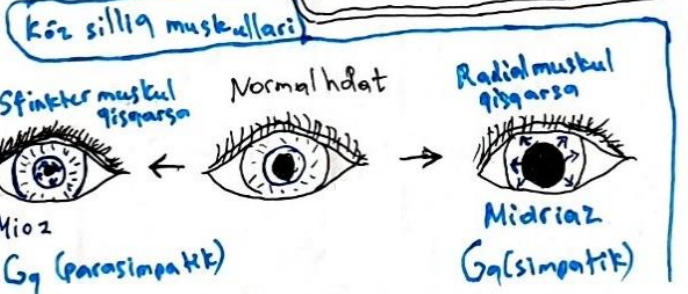 Kóz silliq muskullari
Sfinkter muskul
qisqarsa
Normal holat
Radial muskul
qisqarsa
Mioz
Midriaz
Gq (parasimpatik)
Gq (simpatik)